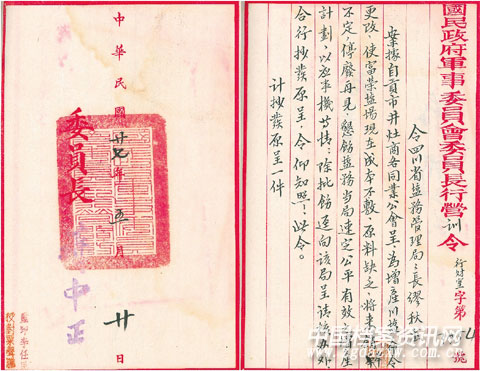 國民政府軍事委員會委員長行營訓令
行財室字第 號
令四川省鹽務管理局局長繆秋
案據自貢市井灶商各同業公會呈,為增產川
更改,使富榮鹽場現在成本不敷,原料缺乏,將來
不定,停廢再見,懇飭鹽務當局速定公平有效
計劃,以應事機 情。除批飭逕向該局呈請該辦外,
合行抄發原呈,令仰知照。此令。
計抄發原呈一件
委員長
中正
中華民國廿七年五月廿日
監印李任
校對
中国档案资讯网
www.zgdazxw.com.cn